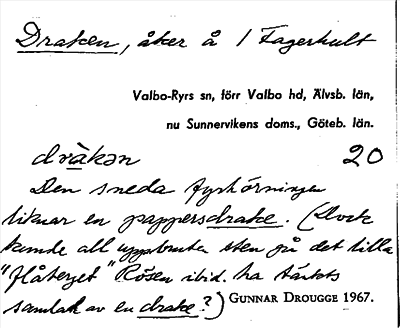 Draken, åker å 1 Fagerhult
Valbo-Ryrs sn, förr Valbo hd, Älvsb. län,
nu Sunnervikens doms., Göteb. län.
dràkən 20
Den sneda fyrhörningen
liknar en pappersdrake. (Dock
kunde all uppbruten sten på det lilla
"flåterget" Rösen ibid. ha tänkts
samlat av en drake?) GUNNAR DROUGGE 1967.